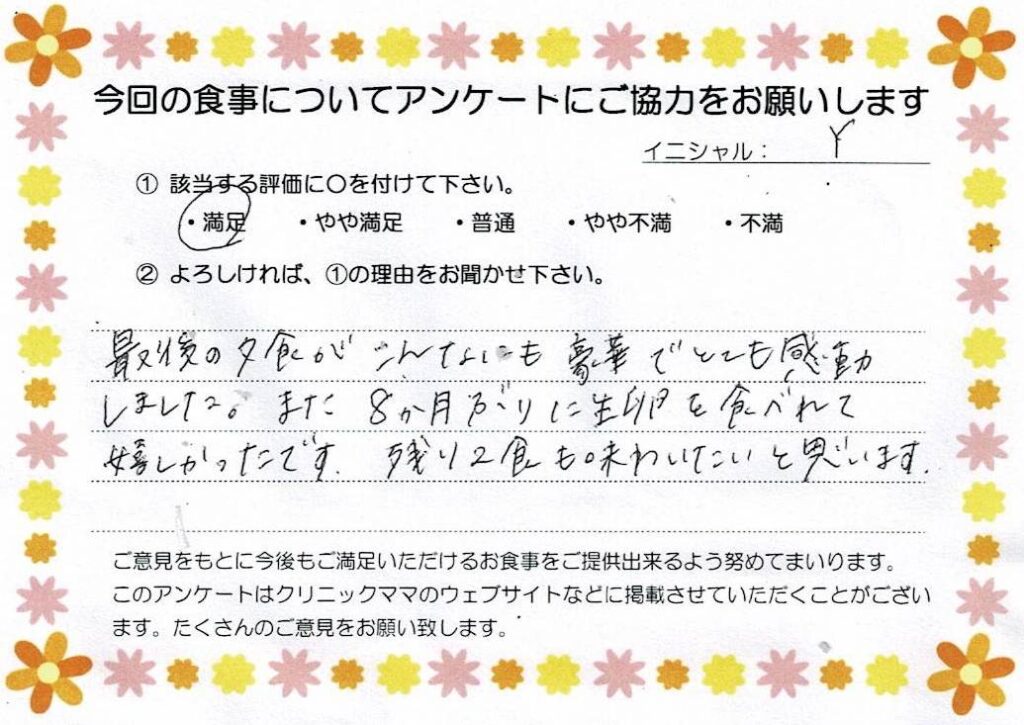 今回の食事についてアンケートにご協力をお願いします
イニシャル： Y
① 該当する評価に〇を付けて下さい。
・満足 ・やや満足 ・普通 ・やや不満 ・不満
② よろしければ、①の理由をお聞かせ下さい。
最後の夕食がこんなにも豪華でとても感動
しました。また8か月ぶりに生卵を食べれて
嬉しかったです。残り2食も味わいたいと思います。
ご意見をもとに今後もご満足いただけるお食事をご提供出来るよう努めてまいります。
このアンケートはクリニックママのウェブサイトなどに掲載させていただくことがござい
ます。たくさんのご意見をお願い致します。